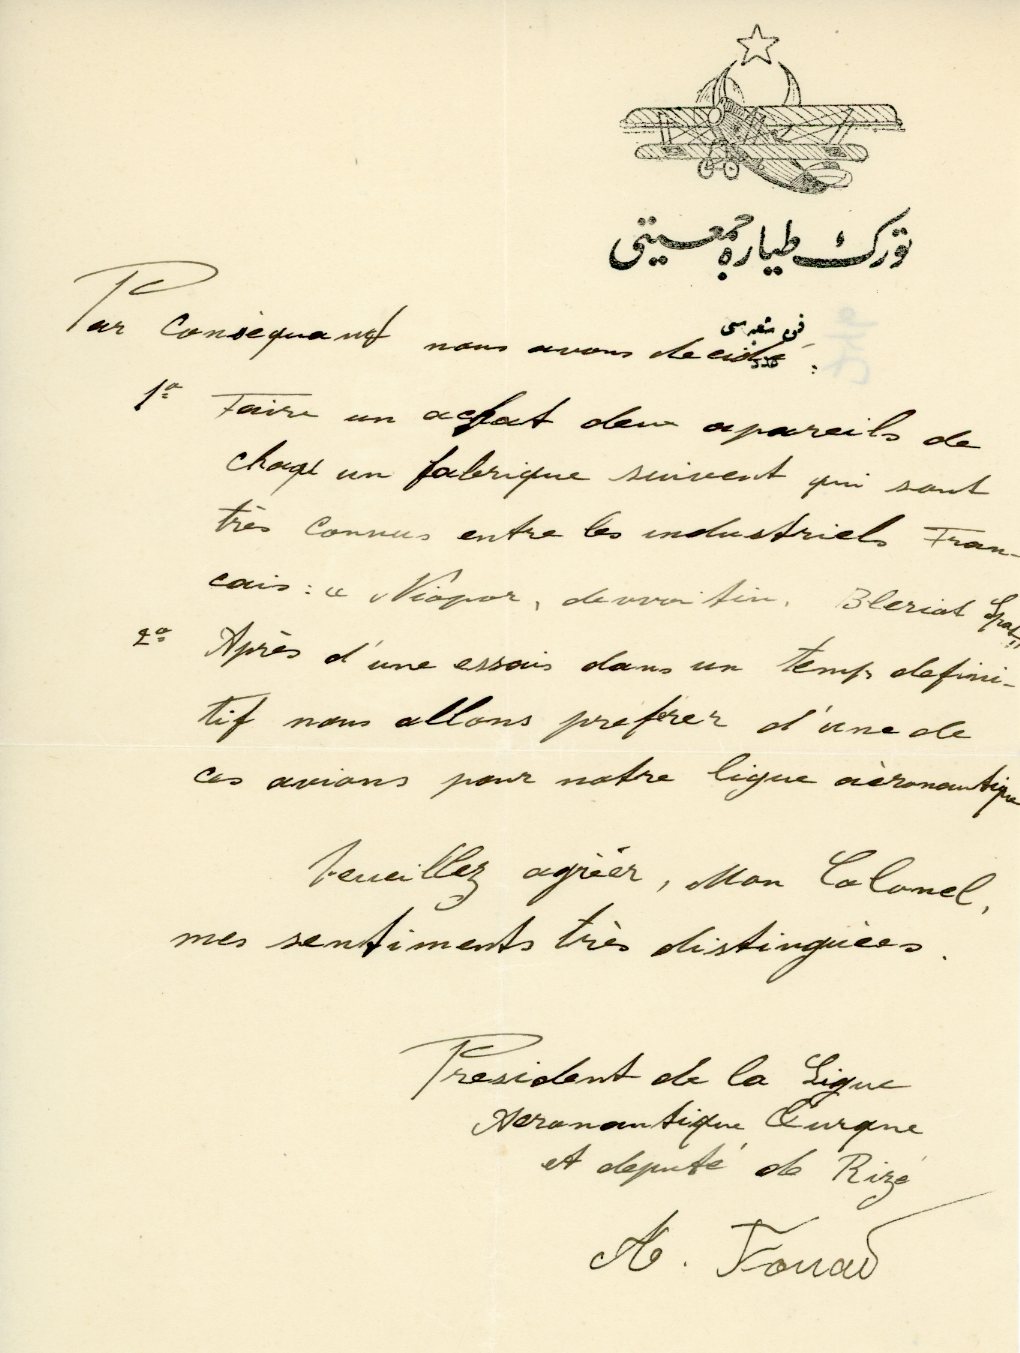 تورك طياره جمعيتى
فنى شعبه سى
عدد
Par Conséquant nous avons decidé :
1º Faire un achat deux apareils de
chaqe un fabrique suivent qui sont
très connus entre les industriels Fran-
cais : " Niopor, devvoitin, Bleriot Spat "
2º Après d'une essais dans un temps defini-
tif nous allons preferer d'une de
ces avions pour notre ligue aèronautique
Veuillez agrèèr, Mon Colonel,
mes sentiments très distinguèes.
President de la Ligue
Aeronautique Turque
et deputé de Rizé
A. Fouad